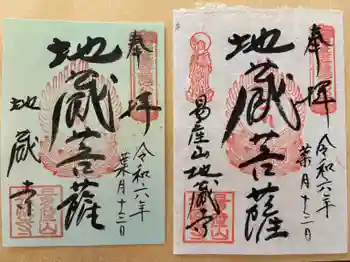 奉拝
令和六年
葉月十三日
地蔵菩薩
地蔵寺
奉拝
令和六年
葉月十三日
地蔵菩薩
易産山地蔵寺